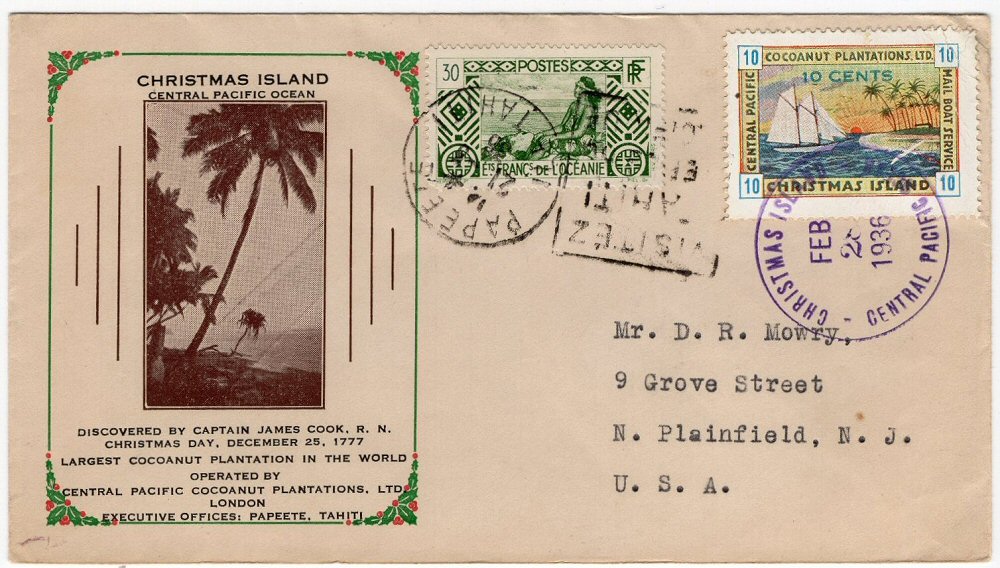 CHRISTMAS ISLAND
CENTRAL PACIFIC OCEAN
DISCOVERED BY CAPTAIN JAMES COOK, R. N.
CHRISTMAS DAY, DECEMBER 25, 1777
LARGEST COCOANUT PLANTATION IN THE WORLD
OPERATED BY
CENTRAL PACIFIC COCOANUT PLANTATIONS, LTD.
LONDON
EXECUTIVE OFFICES: PAPEETE, TAHITI
30 POSTES RF
ETS FRANC. DE L'OCÉANIE
PAPEETE
VISITEZ
TAHITI
10 COCOANUT PLANTATIONS, LTD. 10
10 CENTS
CENTRAL PACIFIC
MAIL BOAT SERVICE
10 CHRISTMAS ISLAND 10
CHRISTMAS ISLAND - CENTRAL PACIFIC
FEB
1936
Mr. D. R. Mowry,
9 Grove Street
N. Plainfield, N. J.
U. S. A.